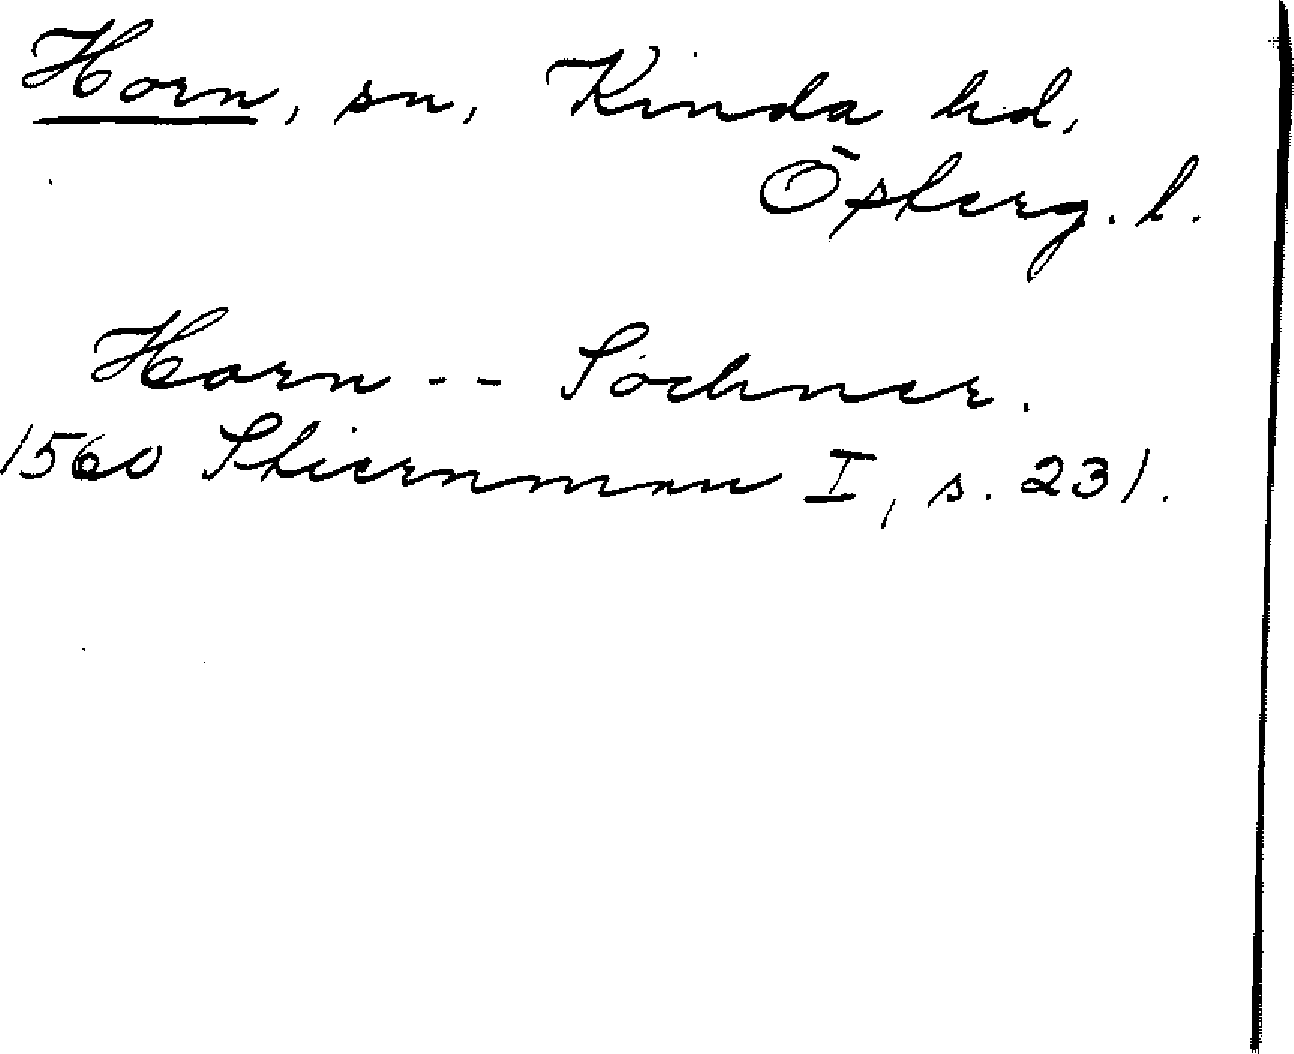 Horn, sn, Kinda hd,
Österg. l.
Horn -- Sochner.
1560 Stiernman I, s. 231.